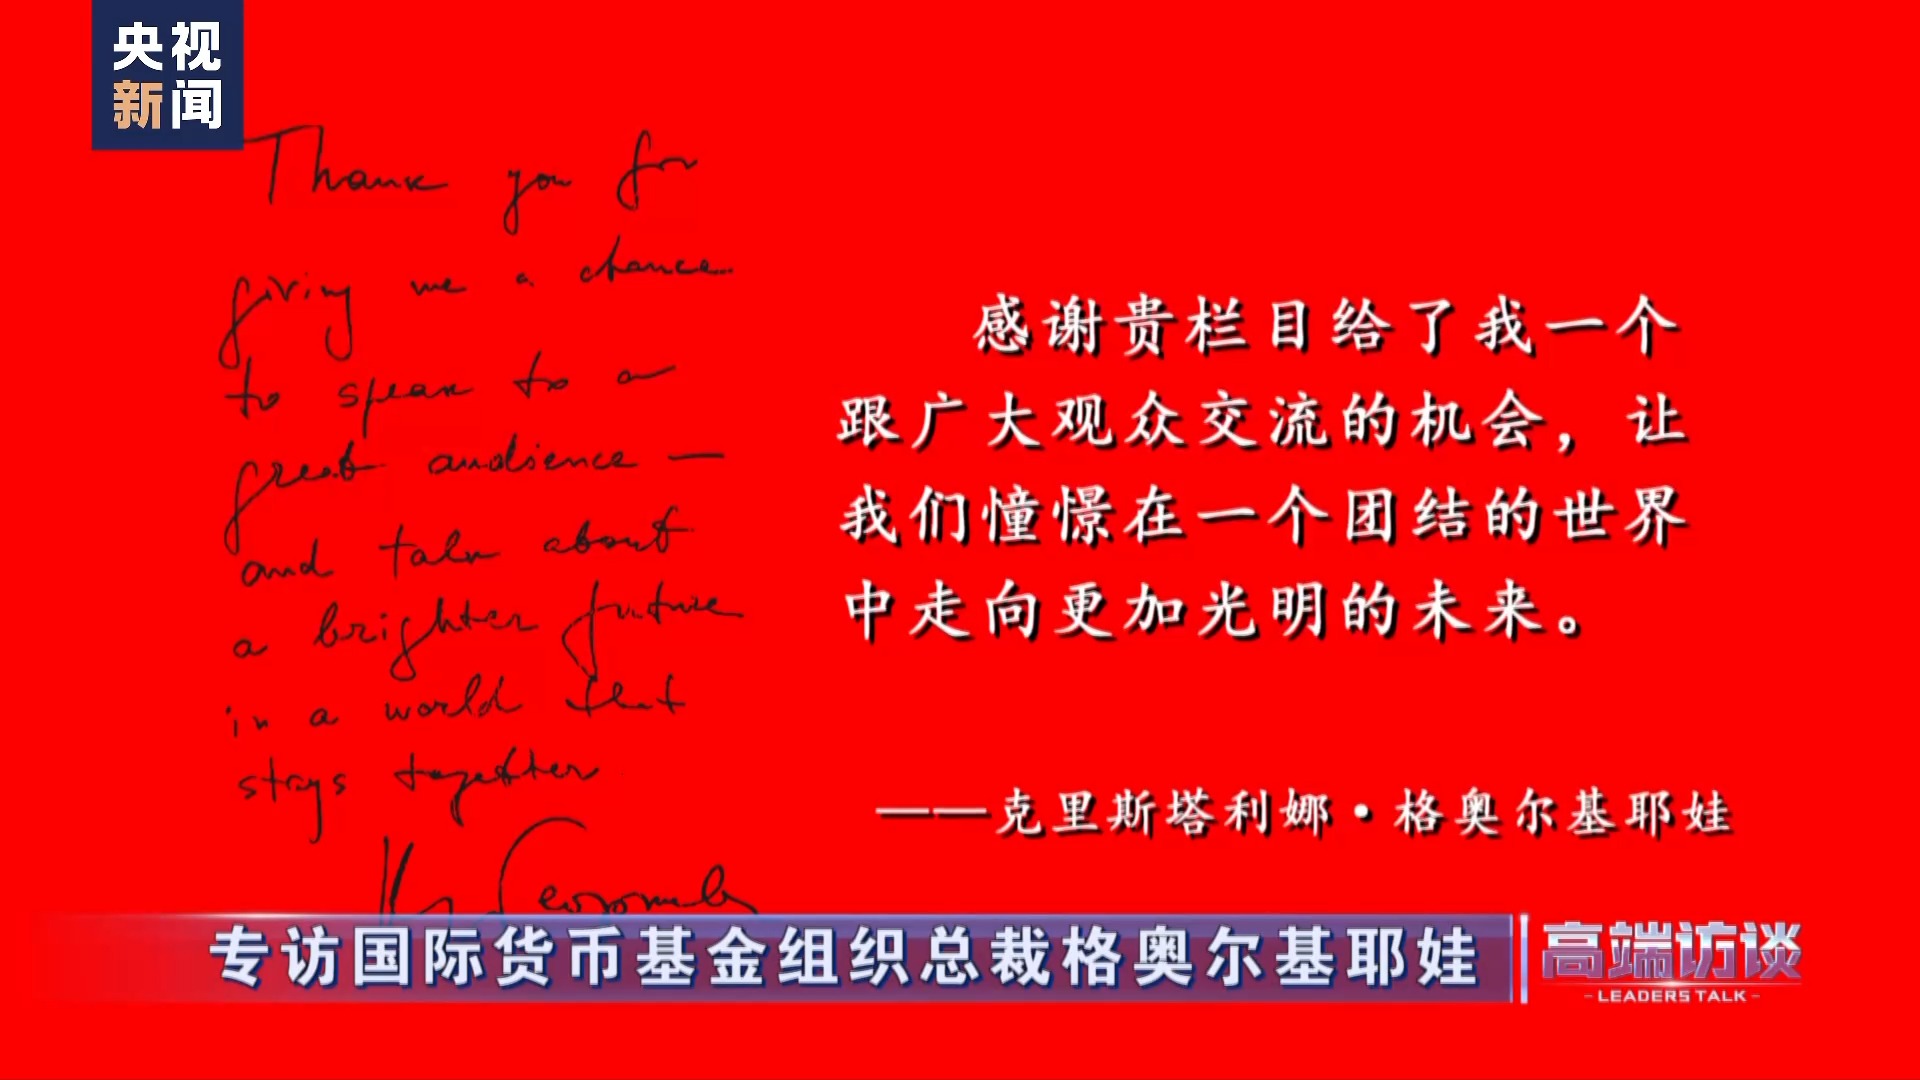 央视
新闻
Thank you for
giving me a chance
to speak to a
great audience —
and talk about
a brighter future
in a world that
stays together
感谢贵栏目给了我一个
跟广大观众交流的机会，让
我们憧憬在一个团结的世界
中走向更加光明的未来。
——克里斯塔利娜·格奥尔基耶娃
专访国际货币基金组织总裁格奥尔基耶娃
高端访谈
- LEADERS TALK -